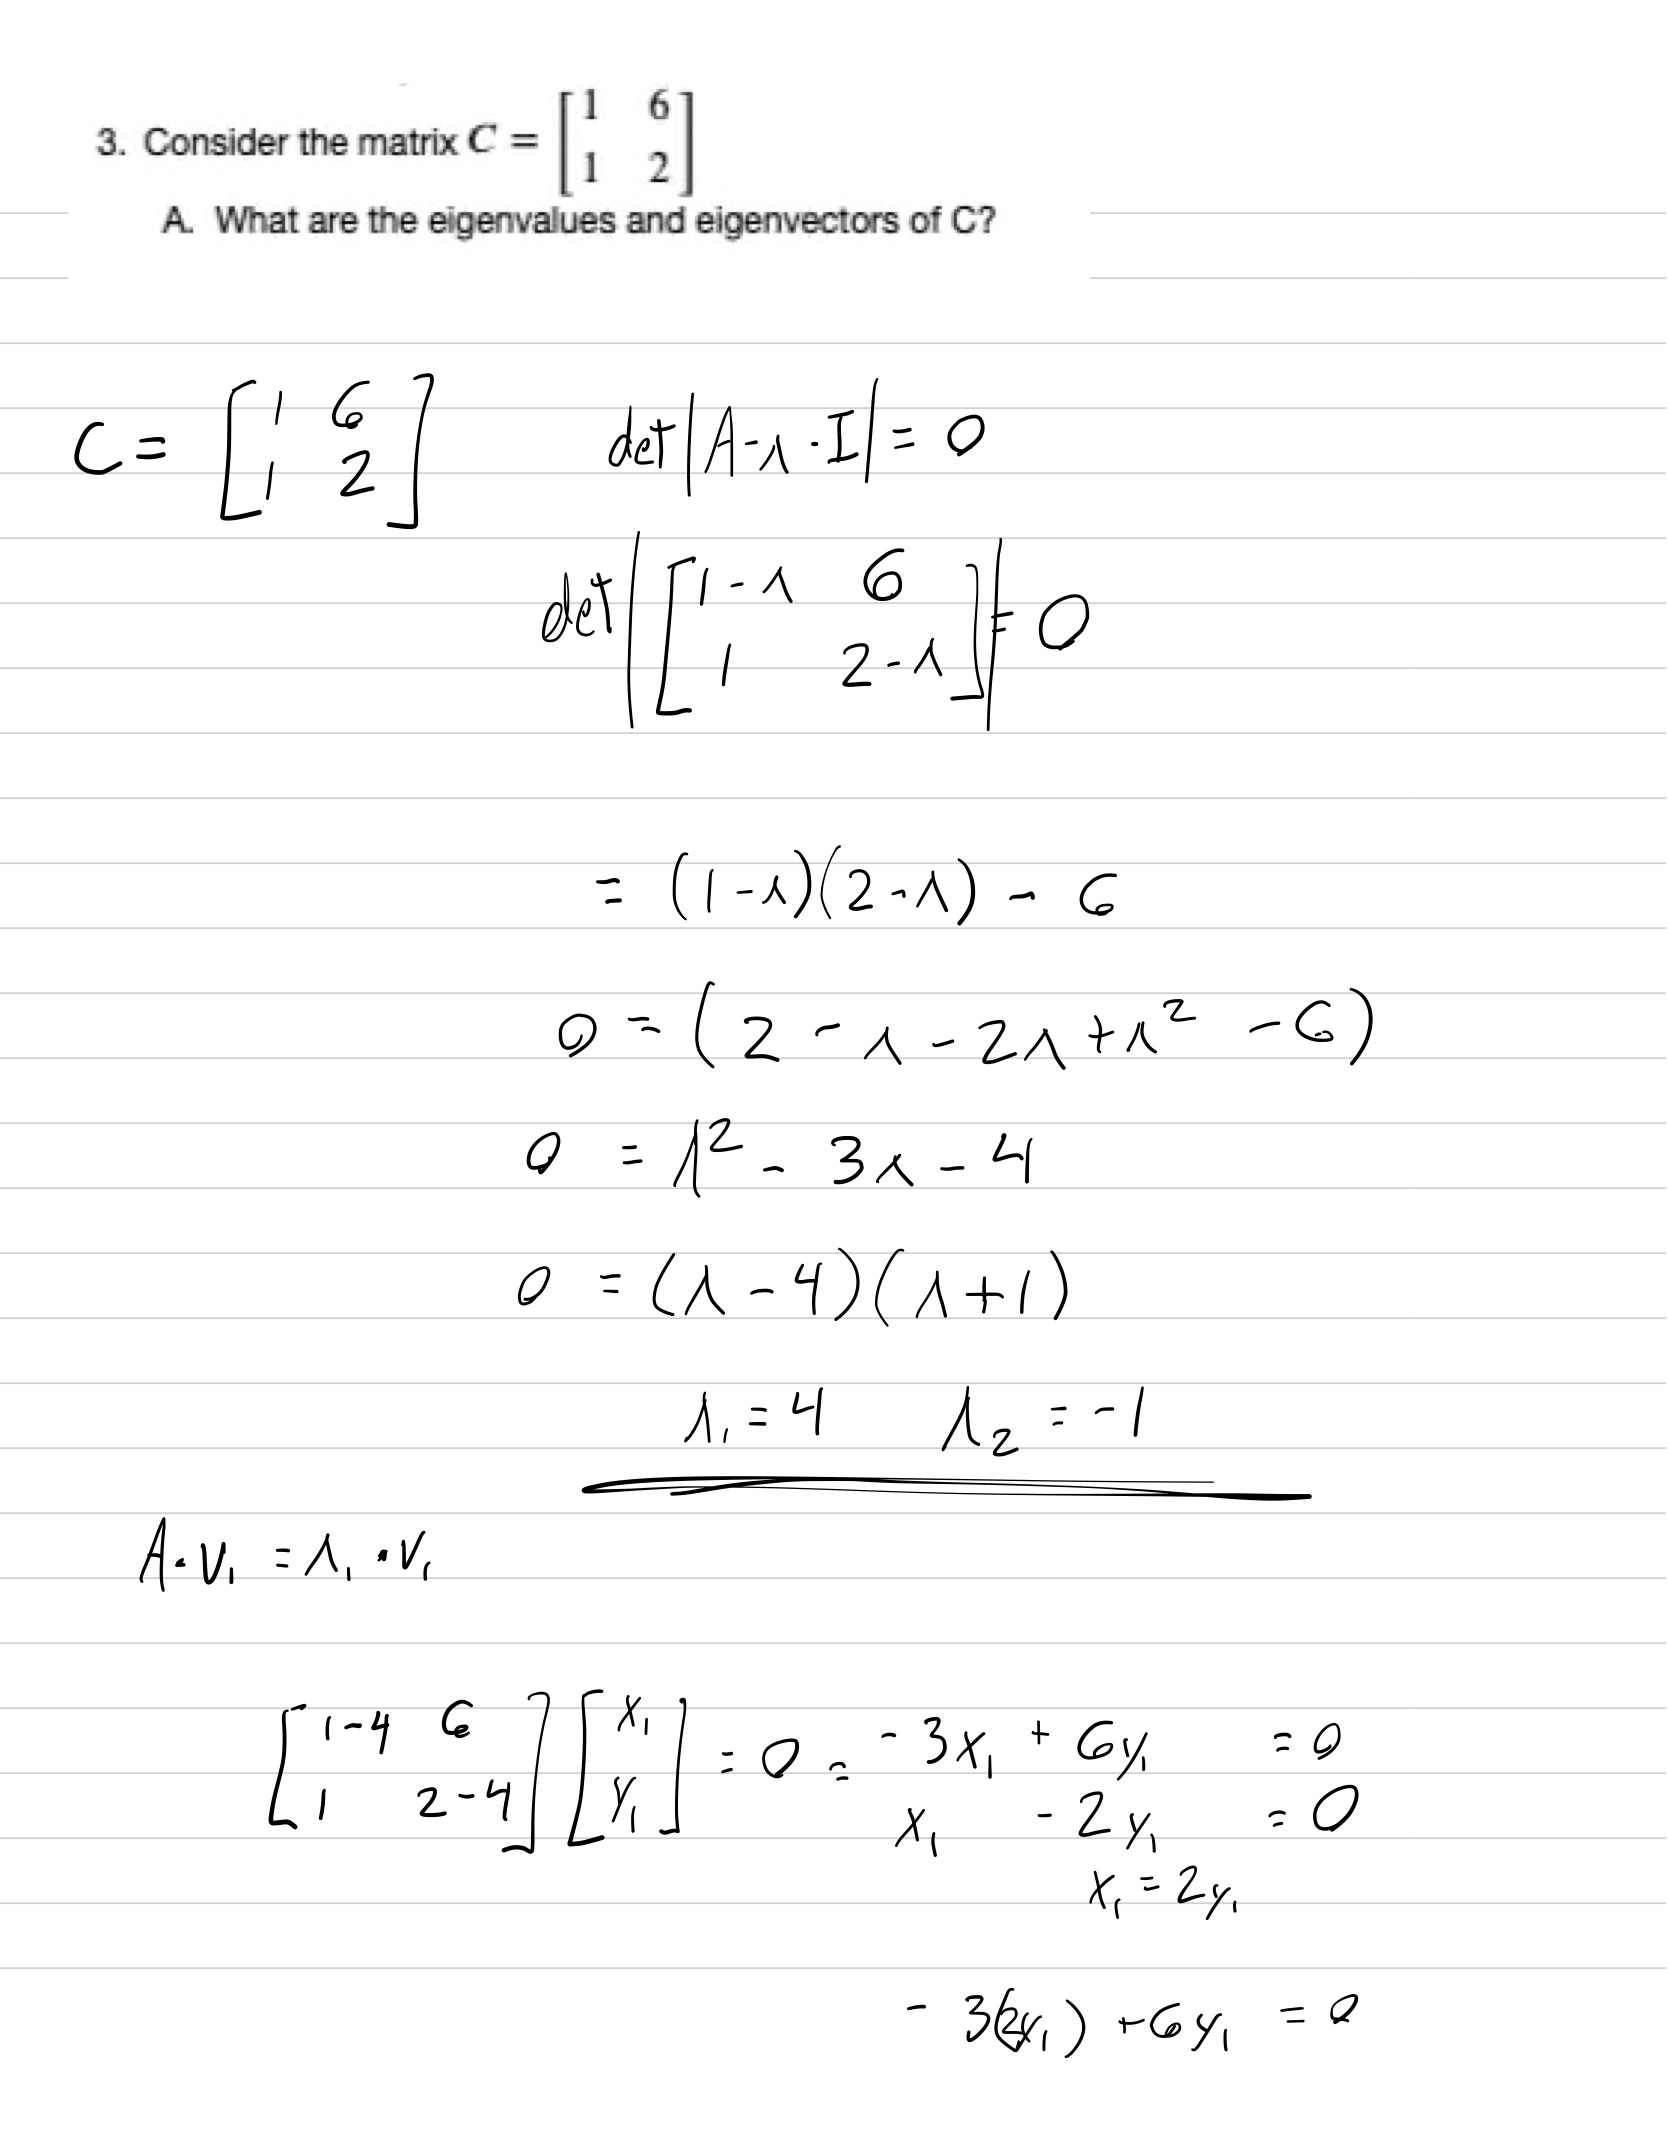 3. Consider the matrix C = [1 6
1 2]
A. What are the eigenvalues and eigenvectors of C?
C = [1 6
1 2]
det|A-λ·I| = 0
det|[1-λ 6
1 2-λ]| = 0
= (1-λ)(2-λ) - 6
0 = (2 - λ - 2λ + λ² - 6)
0 = λ² - 3λ - 4
0 = (λ - 4)(λ + 1)
λ₁ = 4 λ₂ = -1
A·v₁ = λ₁·v₁
[1-4 6
1 2-4] [x₁
y₁] = 0 = -3x₁ + 6y₁ = 0
x₁ - 2y₁ = 0
x₁ = 2y₁
-3(2y₁) + 6y₁ = 0